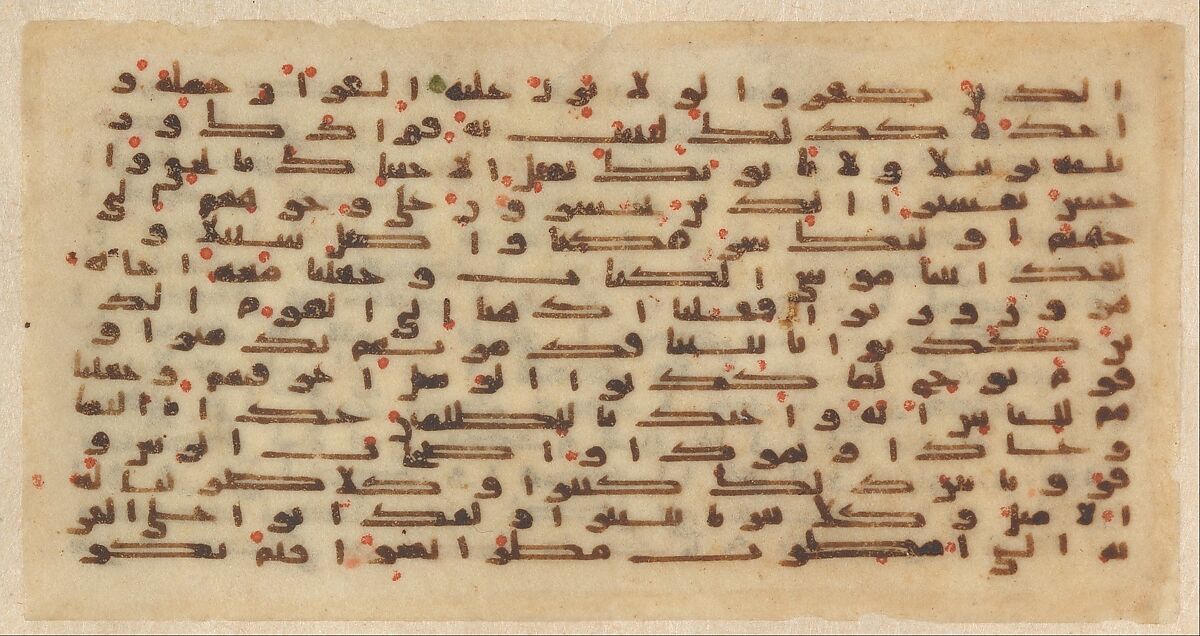 الذين كفروا لولا نزل عليه القران جملة و
احدة كذلك لنثبت به فوادك ور
تلنه ترتيلا ولا ياتونك بمثل الا جئنك بالحق وا
حسن تفسيرا الذين يحشرون على وجوههم الى
جهنم اولئك شر مكانا واضل سبيلا و
لقد اتينا موسى الكتب وجعلنا معه اخاه
هرون وزيرا فقلنا اذهبا الى القوم الذ
ين كذبوا بايتنا فدمرنهم تدميرا و
قوم نوح لما كذبوا الرسل اغرقنهم وجعلنا
هم للناس اية واعتدنا للظلمين عذابا اليما
وعادا وثمودا واصحب الرس و
قرونا بين ذلك كثيرا وكلا ضربنا له
الامثل وكلا تبرنا تتبيرا ولقد اتوا على القر
ية التي امطرت مطر السو افلم يكو